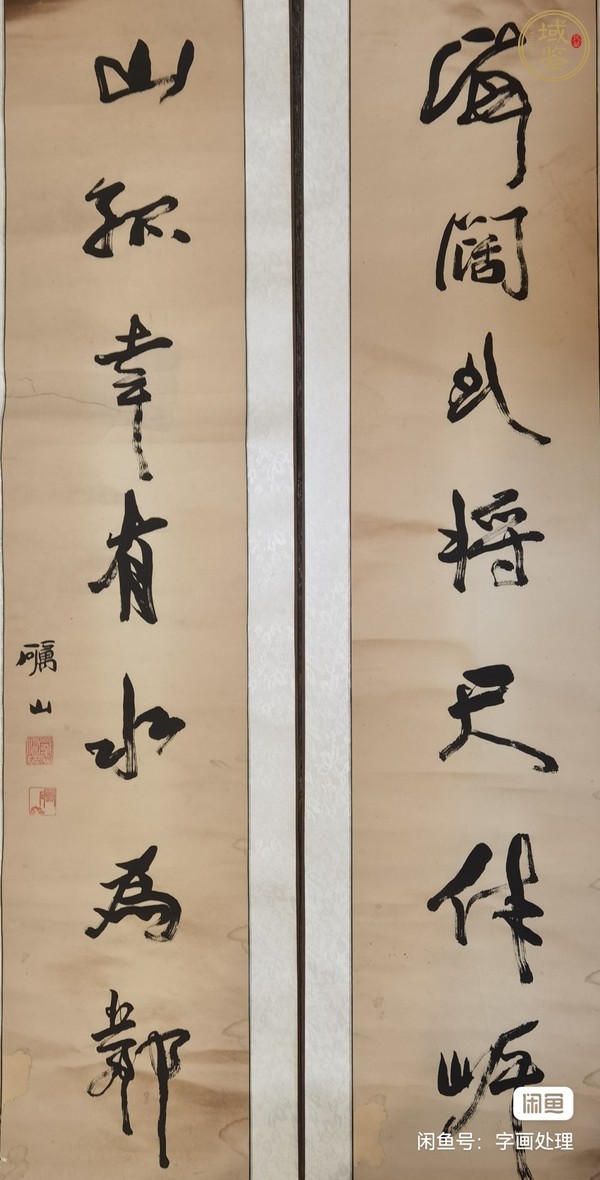 海闊將天作岸
山孤幸有水為鄰
礪山
域鉴
闲鱼
闲鱼号：字画处理